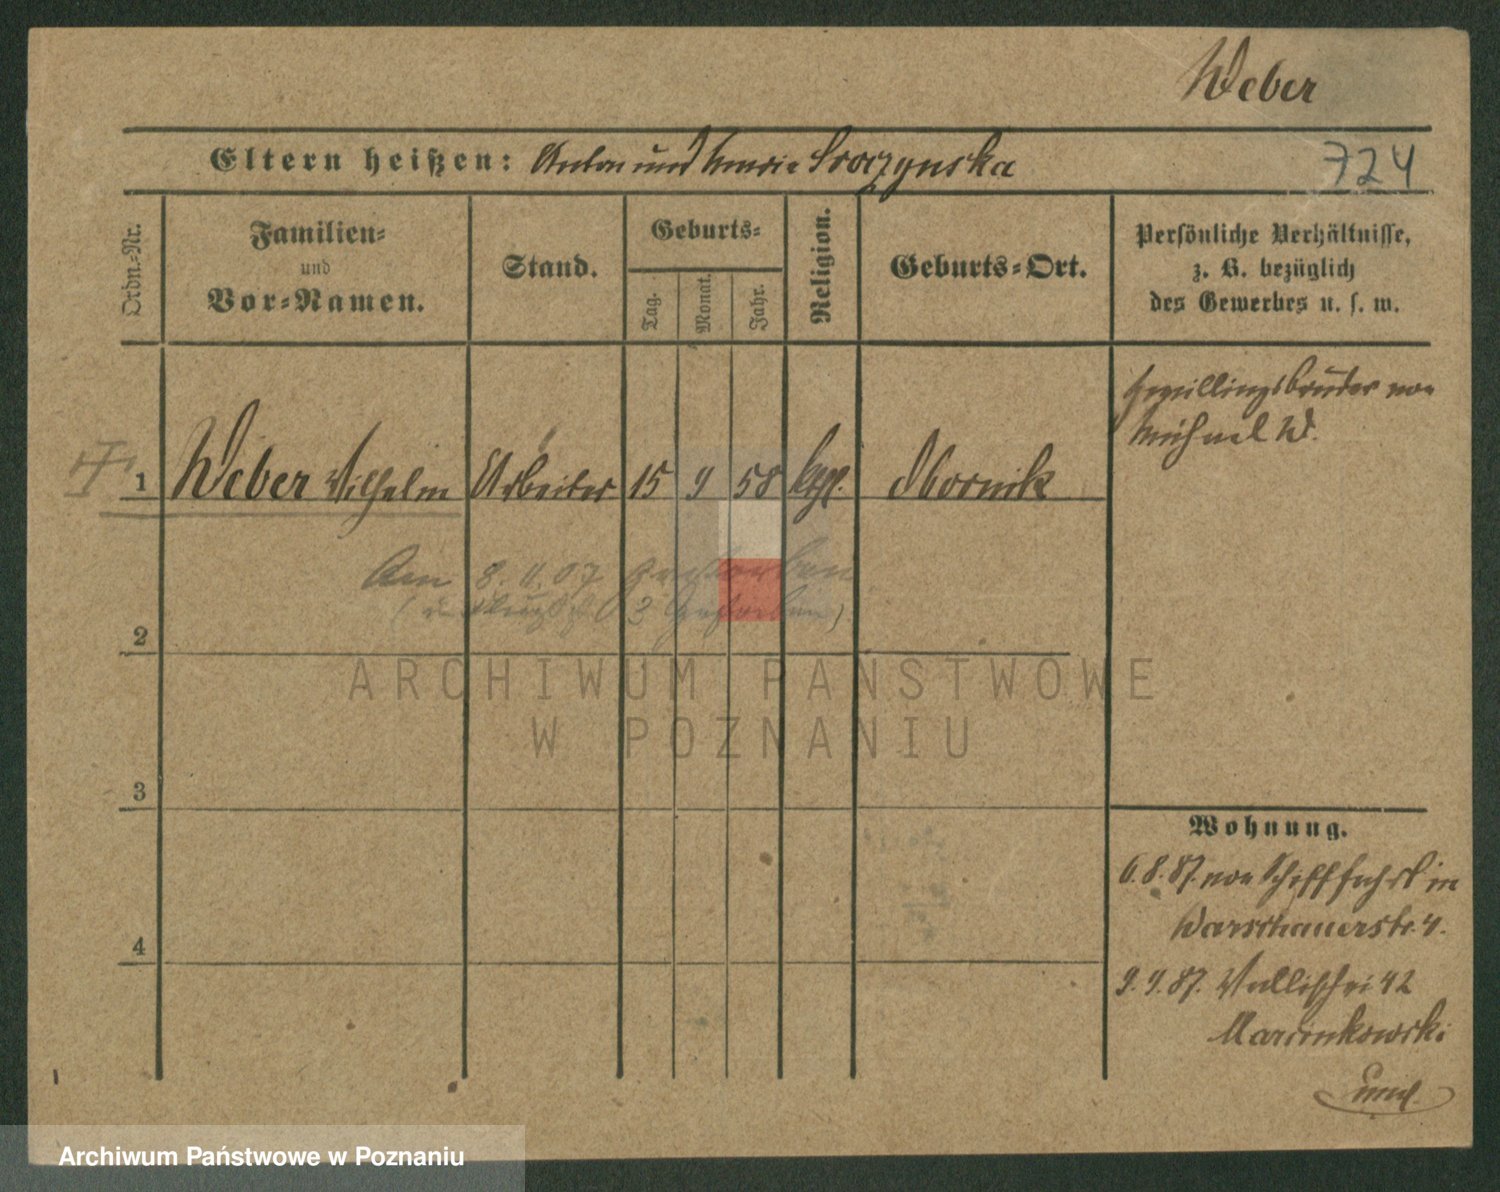 Weber
Eltern heißen: Anton und Maria
724
Ordn.-Nr.
Familien-
und
Vor-Namen.
Stand.
Geburts-
Tag.
Monat.
Jahr.
Religion.
Geburts-Ort.
Persönliche Verhältnisse,
z. B. bezüglich
des Gewerbes u. s. w.
1 Weber Wilhelm Arbeiter 15 9 58 kath. Obornik
Zwillingsbruder von
Michael W.
Am 8. 4. 07 gestorben
2
ARCHIWUM PAŃSTWOWE
W POZNANIU
3
4
Wohnung.
6.8.87. von Schifffahrt in
Warschauerstr. 4.
9.9.87. Wallischei 42
Archiwum Państwowe w Poznaniu